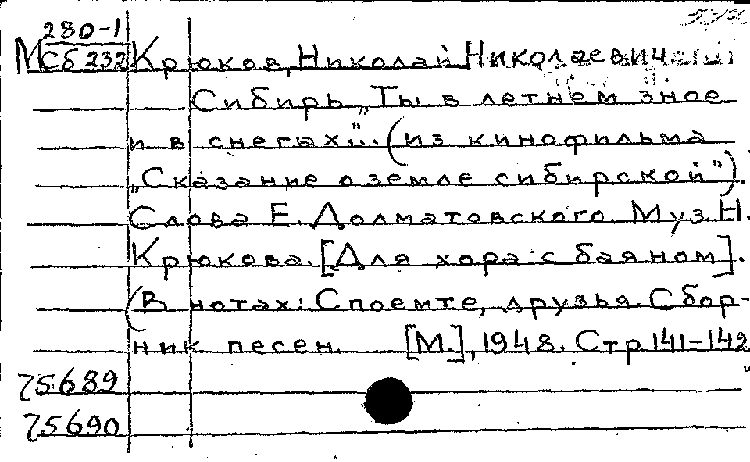 280-1
М Сб 232 Крюков, Николай Николаевич
Сибирь „Ты в летнем зное
и в снегах"... (из кинофильма
„Сказание о земле сибирской").
Слова Е. Долматовского. Муз. Н.
Крюкова. [Для хора с баяном].
(В нотах: Споемте, друзья. Сбор-
ник песен. [М.], 1948. Стр 141-142
75689
75690